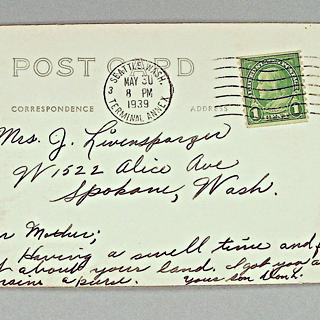 POST CARD
SEATTLE, WASH.
MAY 30
8 PM
1939
TERMINAL ANNEX
3
1
CORRESPONDENCE
ADDRESS
Mrs. J. Livensparger
W 1522 Alice Ave
Spokane, Wash.
r Mother;
Having a swell time and
about your land. I got you a
a purse. Your son Don.